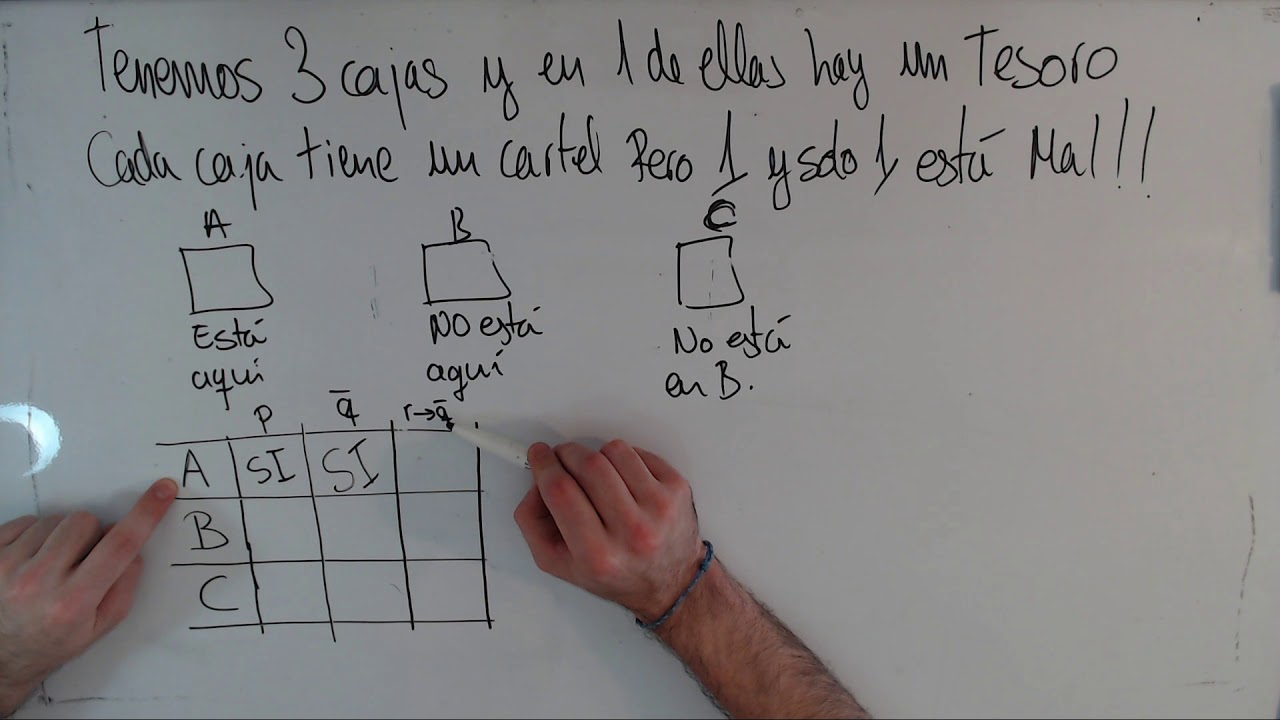 Tenemos 3 cajas y en 1 de ellas hay un Tesoro
Cada caja tiene un cartel Pero 1 y solo 1, está Mal!!!
A B C
Está NO está No está
aquí aquí en B.
p q̅ r→q̅
A SI SI
B
C